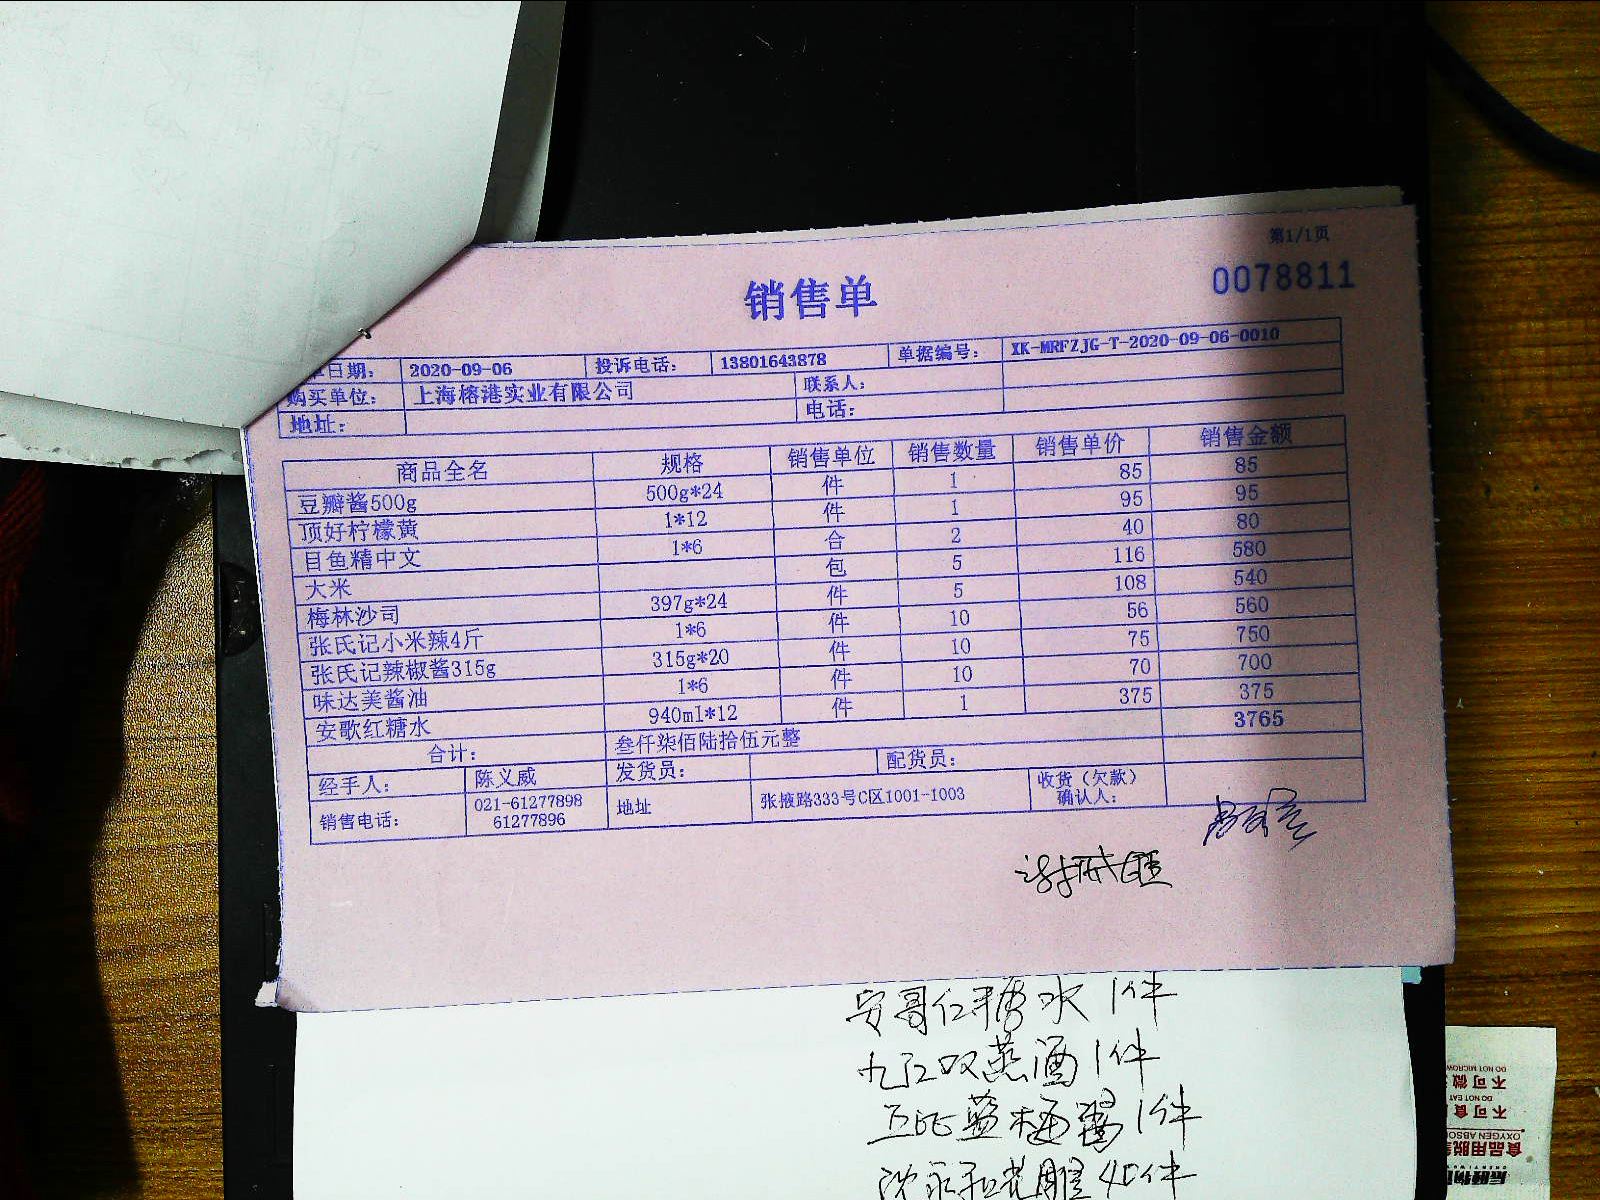 第1/1页
销售单
0078811
日期： 2020-09-06 投诉电话： 13801643878 单据编号： XK-MRFZJG-T-2020-09-06-0010
购买单位： 上海榕港实业有限公司 联系人：
地址： 电话：
商品全名 规格 销售单位 销售数量 销售单价 销售金额
豆瓣酱500g 500g*24 件 1 85 85
顶好柠檬黄 1*12 件 1 95 95
目鱼精中文 1*6 合 2 40 80
大米 包 5 116 580
梅林沙司 397g*24 件 5 108 540
张氏记小米辣4斤 1*6 件 10 56 560
张氏记辣椒酱315g 315g*20 件 10 75 750
味达美酱油 1*6 件 10 70 700
安歌红糖水 940ml*12 件 1 375 375
合计： 叁仟柒佰陆拾伍元整 3765
经手人： 陈义威 发货员： 配货员：
销售电话： 021-61277898 61277896 地址 张掖路333号C区1001-1003 收货（欠款）确认人：
安哥仁糖水 1件
九江双蒸酒 1件
1件
不可微
DO NOT MICROW
不可食
DO NOT EAT
OXYGEN ABSO
食品用脱